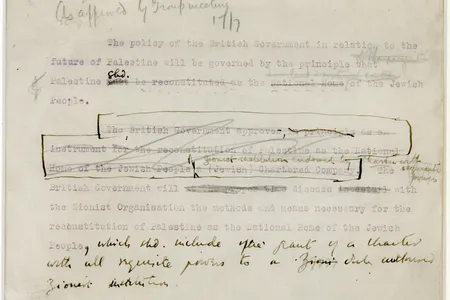 As approved by Group meeting
17/7
The policy of the British Government in relation to the
future of Palestine will be governed by the principle that
shd.
Palestine must be reconstituted as the national home for the Jewish
People.
The British Government approves, in principle as an
instrument for the reconstitution of Palestine as the National
Home of the Jewish People, a (Jewish) Chartered Company. The
charter with
requisite
powers
British Government will discuss in detail with
the Zionist Organisation the methods and means necessary for the
reconstitution of Palestine as the National Home of the Jewish
People, which shd. include the grant of a charter
with all requisite powers to a Zioni duly authorised
Zionist institution.